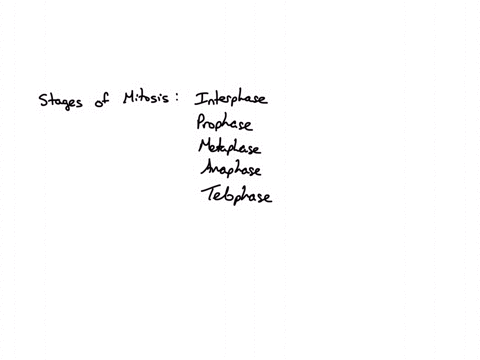 Stages of Mitosis: Interphase
Prophase
Metaphase
Anaphase
Telophase